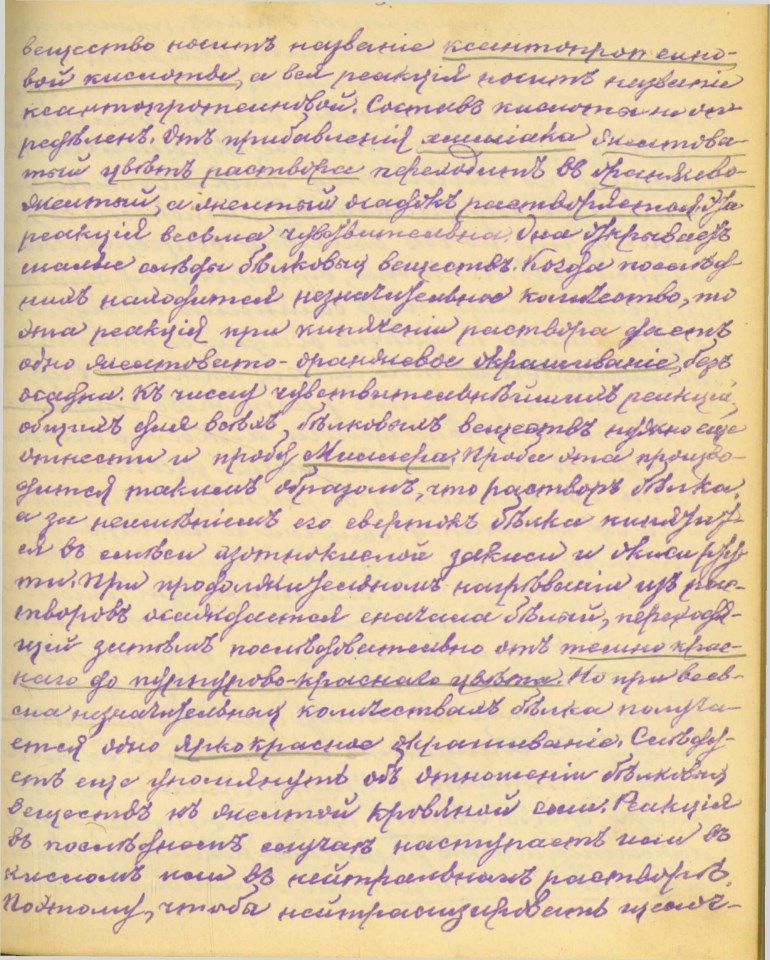 вещество носитъ названіе ксантопротеино-
вой кислоты, а вся реакція носитъ названіе
ксантопротеиновой. Составъ кислоты не оп-
редѣленъ. Отъ прибавленія амміака желтова-
тый цвѣтъ раствора переходитъ въ оранжево-
желтый, а желтый осадокъ растворяется. Эта
реакція весьма чувствительна. Она открываетъ
малые слѣды бѣлковыхъ веществъ. Когда послѣд-
нихъ находится незначительное количество, то
эта реакція при кипяченіи раствора даетъ
одно желтовато-оранжевое окрашиваніе, безъ
осадка. Къ числу чувствительнѣйшихъ реакцій,
общихъ для всѣхъ бѣлковыхъ веществъ нужно еще
отнести и пробу Миллера. Проба эта произво-
дится такимъ образомъ, что растворъ бѣлка,
а за неимѣніемъ его свертокъ бѣлка кипятит-
ся въ смѣси азотнокислой закиси и окиси рту-
ти. При продолжительномъ нагрѣваніи изъ рас-
творовъ осаждается сначала бѣлый, переходя-
щій затѣмъ послѣдовательно отъ темно крас-
наго до пурпурово-краснаго цвѣта. Но при весь-
ма незначительныхъ количествахъ бѣлка получа-
ется одно яркокрасное окрашиваніе. Слѣду-
етъ еще упомянуть объ отношеніи бѣлковыхъ
веществъ къ желтой кровяной соли. Реакція
въ послѣднемъ случаѣ наступаетъ или въ
кисломъ или въ нейтральномъ растворѣ.
Поэтому, чтобы нейтрализировать щелоч-